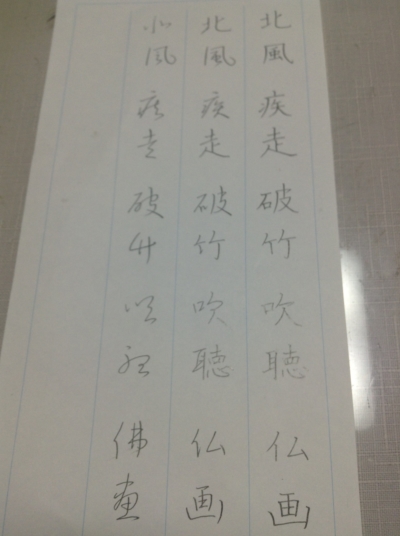 北風 疾走 破竹 吹聴 仏画
北風 疾走 破竹 吹聴 仏画
北風 疾走 破竹 吹聴 佛畫